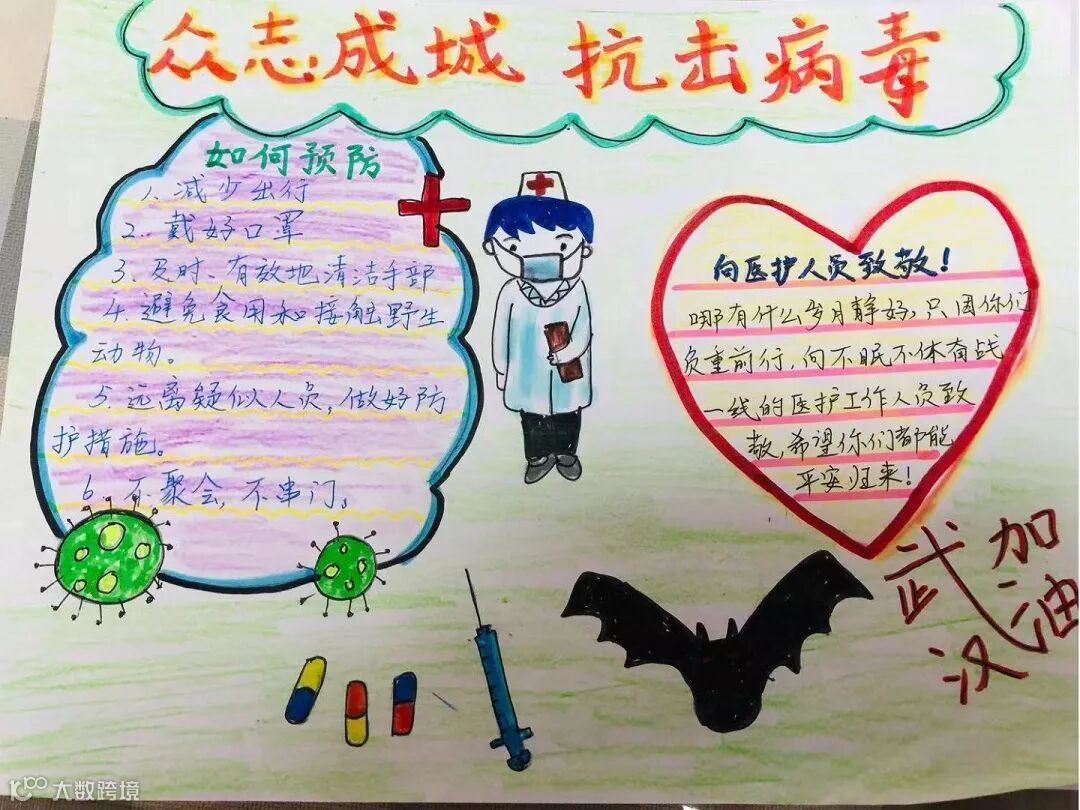 众志成城 抗击病毒
如何预防
1、减少出行
2、戴好口罩
3、及时、有效地清洁手部
4、避免食用和接触野生
动物。
5、远离疑似人员,做好防
护措施。
6、不聚会,不串门。
向医护人员致敬!
哪有什么岁月静好,只因你们
负重前行,向不眠不休奋战
一线的医护工作人员致
敬,希望你们都能
平安归来!
武汉
加油
大数跨境